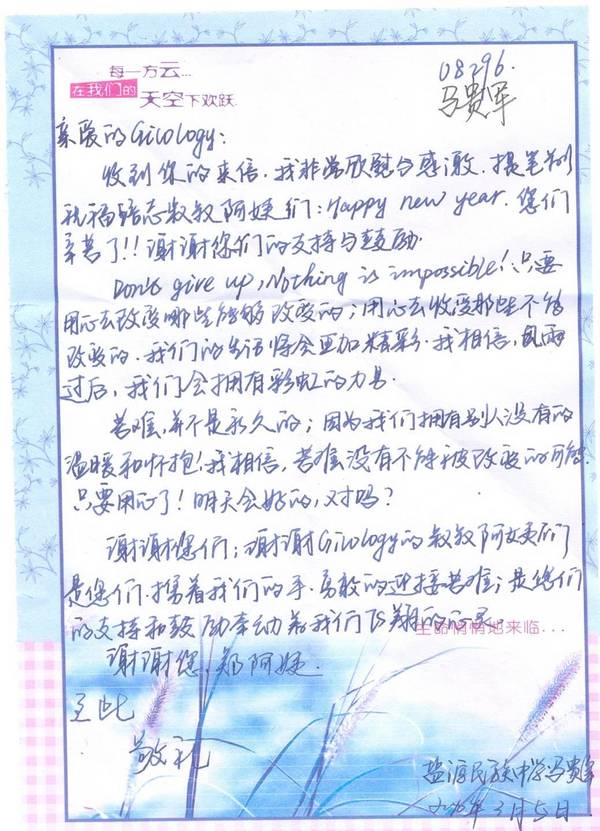 每一方云...
在我们的
天空下欢跃
08296.
马贵军
亲爱的Gicology:
收到你的来信.我非常欣慰与感激.提笔
祝福 叔叔阿姨们: Happy new year. 您们
辛苦了!! 谢谢你们的支持与鼓励.
Don't give up, Nothing is impossible! 只要
用心去改变哪些能够改变的; 用心去收受那些不能
改变的. 我们的生活将会更加精彩. 我相信, 风雨
过后, 我们会拥有彩虹的
苦难, 并不是永久的; 因为我们拥有别人没有的
温暖和怀抱! 我相信, 苦难没有不能被改变的可能.
只要用心了! 明天会好的, 对吗?
谢谢您们; 谢谢Gicology的叔叔阿姨们
是您们.携着我们的手.勇敢的迎接苦难; 是您们
的支持和鼓励牵动着我们飞翔的心灵.
生命悄悄地来临...
谢谢您. 郑阿姨.
至此
敬礼
盐源民族中学马贵军
年3月5日